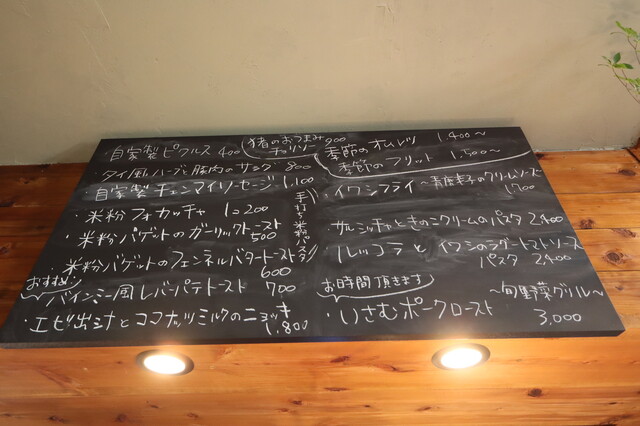 ・自家製ピクルス 400
猪のおつまみ
チョリソー 900
・タイ風ハーブと豚肉のサラダ 800
・自家製チェンマイソーセージ 1,100
・米粉フォカッチャ 1コ200
・米粉バゲットのガーリックトースト
500
・米粉バゲットのフェンネルバタートースト
600
おすすめ
・バインミー風レバーパテトースト 700
・エビ出汁とココナッツミルクのニョッキ
1,800
季節のオムレツ 1,400〜
季節のフリット 1,500〜
・イワシフライ 〜のクリームソース
1700
手打ち米粉パスタ
・サルシッチャときのこクリームのパスタ 2,400
・ルッコラとイワシのラグートマトソース
パスタ 2400
お時間頂きます
・いさむポークロースト
〜旬野菜グリル〜
3,000